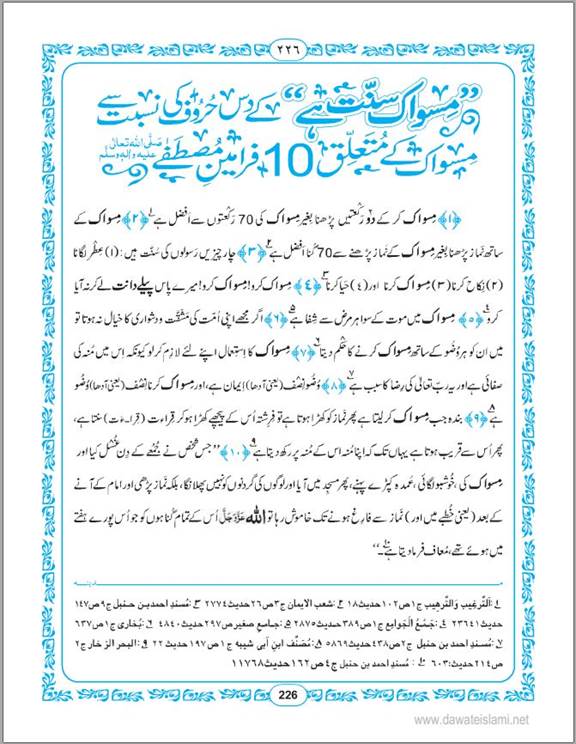 ۲۲٦
”مِسواک سنّت ہے“ کے دس حُرُوف کی نسبت سے
مِسواک کے مُتعلّق 10 فرامینِ مُصطفٰے صَلَّی اللہ تعالٰی علیہ واٰلہٖ وسلَّم
﴿۱﴾ مِسواک کر کے دو رَکعتیں پڑھنا بغیر مِسواک کی 70 رَکعتوں سے افضل ہے ﴿۲﴾ مِسواک کے
ساتھ نَماز پڑھنا بغیر مِسواک کے نَماز پڑھنے سے 70 گُنا افضل ہے ﴿۳﴾ چار چیزیں رسولوں کی سُنّت ہیں: (۱) عِطْر لگانا
(۲) نِکاح کرنا (۳) مِسواک کرنا اور (٤) حَیا کرنا ﴿٤﴾ مِسواک کرو! مِسواک کرو! میرے پاس پیلے دانت لے کر نہ آیا
کرو ﴿۵﴾ مِسواک میں موت کے سوا ہر مرض سے شفا ہے ﴿٦﴾ اگر مجھے اپنی اُمّت کی مشقّت و دشواری کا خیال نہ ہوتا تو
میں ان کو ہر وُضو کے ساتھ مِسواک کرنے کا حکْم دیتا ﴿۷﴾ مِسواک کا اِستِعمال اپنے لئے لازِم کر لو کیونکہ اس میں مُنہ کی
صفائی ہے اور یہ ربّ تعالٰی کی رِضا کا سبب ہے ﴿۸﴾ وُضو نِصْف (یعنی آدھا) ایمان ہے، اور مِسواک کرنا نصْف (یعنی آدھا) وُضو
ہے ﴿۹﴾ بندہ جب مِسواک کر لیتا ہے پھر نَماز کو کھڑا ہوتا ہے تو فِرِشتہ اُس کے پیچھے کھڑا ہو کر قراءت (قِراءَت) سنتا ہے،
پھر اُس سے قریب ہوتا ہے یہاں تک کہ اپنا مُنہ اس کے مُنہ پر رکھ دیتا ہے ﴿۱۰﴾ ”جس شخص نے جُمُعے کے دن غُسْل کیا اور
مِسواک کی، خُوشبو لگائی، عمدہ کپڑے پہنے، پھر مسجِد میں آیا اور لوگوں کی گردنوں کو نہیں پَھلانگا، بلکہ نَماز پڑھی اور امام کے آنے
کے بعد (یعنی خُطبے میں اور) نَماز سے فارِغ ہونے تک خاموش رہا تو اللہ عَزَّوَجَلَّ اُس کے تمام گناہوں کو جو اُس پورے ہفتے
میں ہوئے تھے، مُعاف فرما دیتا ہے۔“
۱: اَلتَّرغِیب وَالتَّرھِیب ج۱ص۱۰۲حدیث۱۸ ۲: شعب الایمان ج۳ص۲٦حدیث۲۷۷٤ ۳: مُسندِ احمد بن حنبل ج۹ص۱٤۷
حدیث۲۳٦٤۱ ٤: جَمْعُ الْجَوامِع ج۱ص۳۸۹حدیث۲۸۷۵ ۵: جامعِ صغیر ص۲۹۷حدیث٤۸٤۰ ٦: بُخاری ج۱ص٦۳۷
۷: مُسندِ احمد بن حنبل ج۲ص٤۳۸حدیث۵۸٦۹ ۸: مُصَنَّف ابنِ اَبی شَیبہ ج۱ص۱۹۷حدیث۲۲ ۹: البحر الزخار ج۲
ص۲۱٤حدیث:٦۰۳ ۱۰: مُسندِ احمد بن حنبل ج٤ص۱٦۲حدیث۱۱۷٦۸
226
www.dawateislami.net